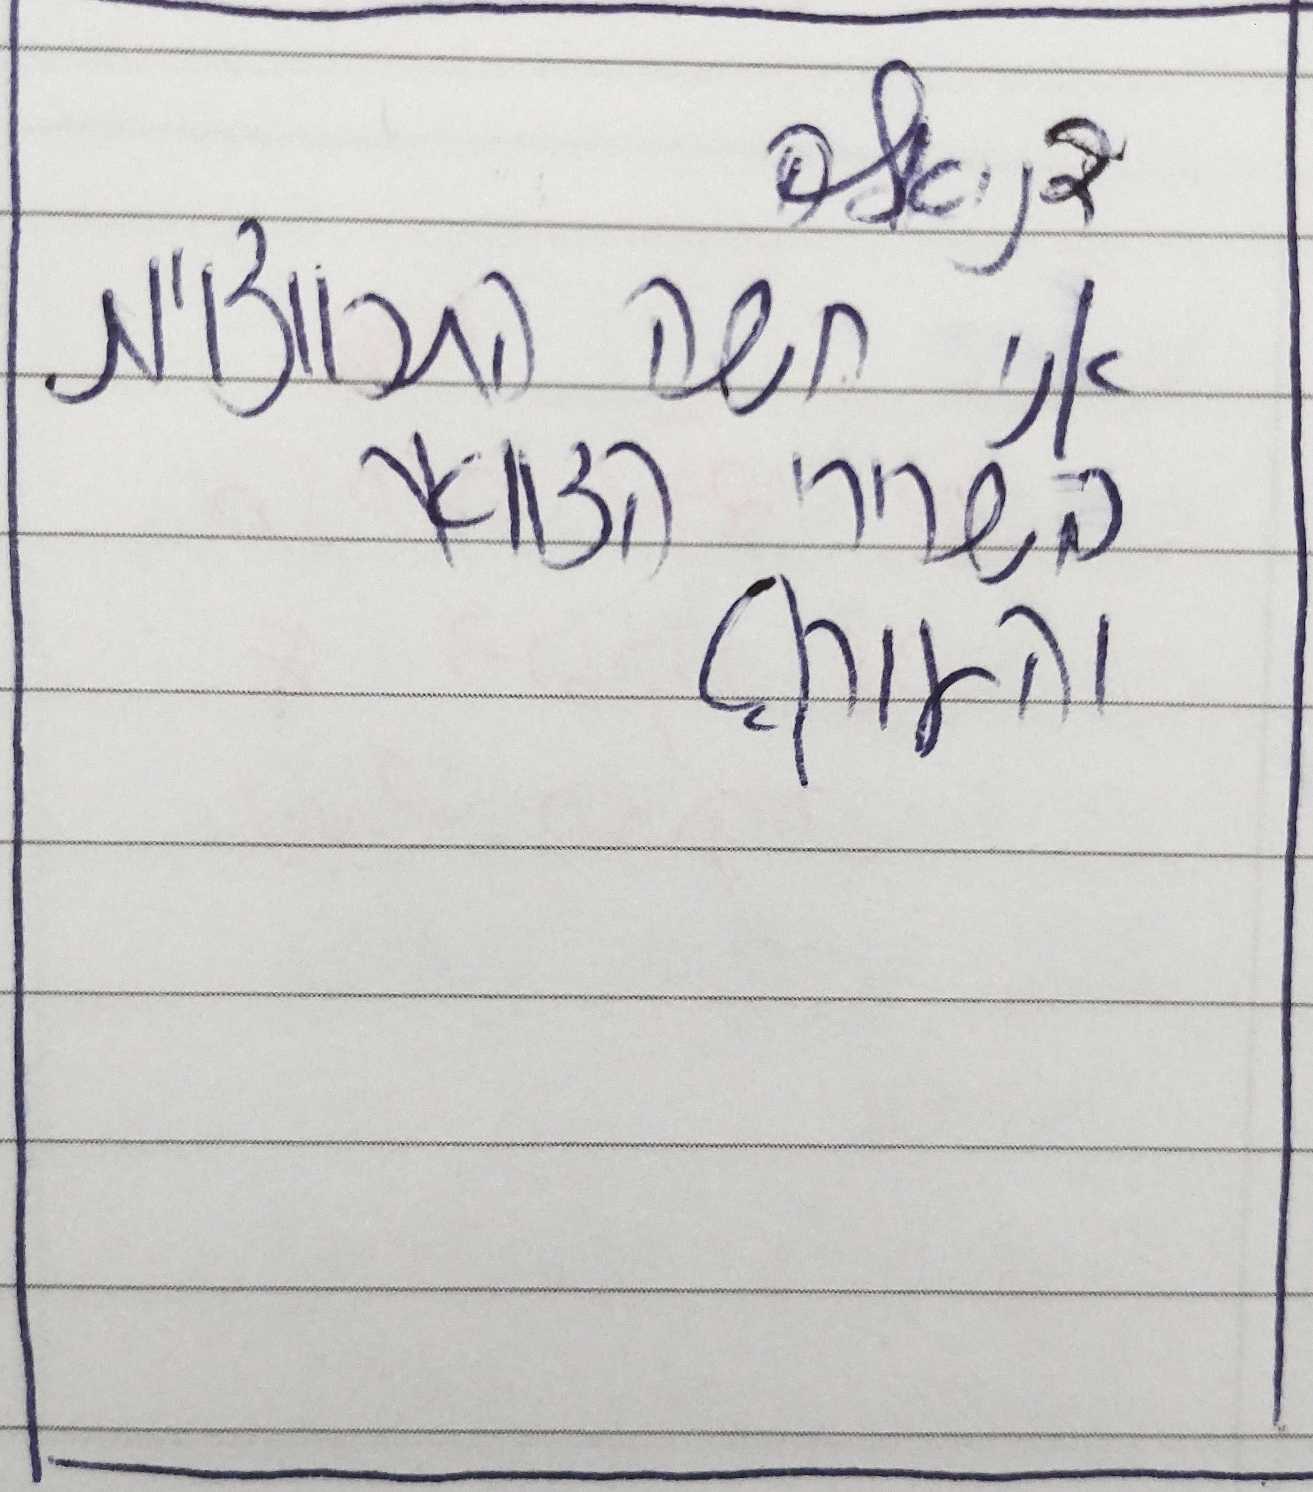 דניאלה
אני חשה התכווצוית
בשרירי הצוואר
והעורף